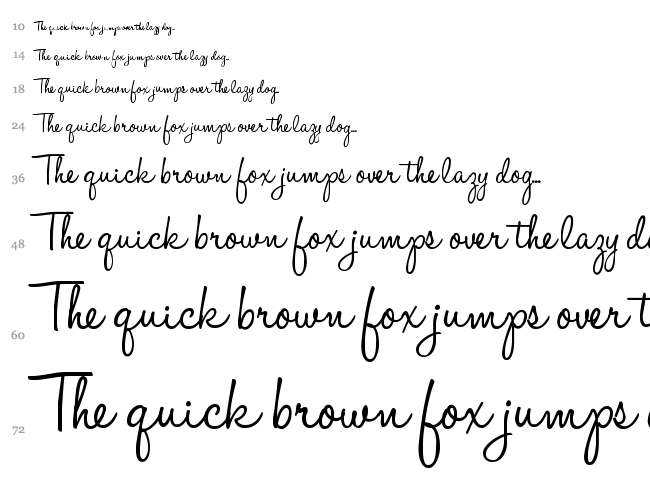 10 The quick brown fox jumps over the lazy dog...
14 The quick brown fox jumps over the lazy dog...
18 The quick brown fox jumps over the lazy dog...
24 The quick brown fox jumps over the lazy dog...
36 The quick brown fox jumps over the lazy dog...
48 The quick brown fox jumps over the lazy d
60 The quick brown fox jumps over t
72 The quick brown fox jumps